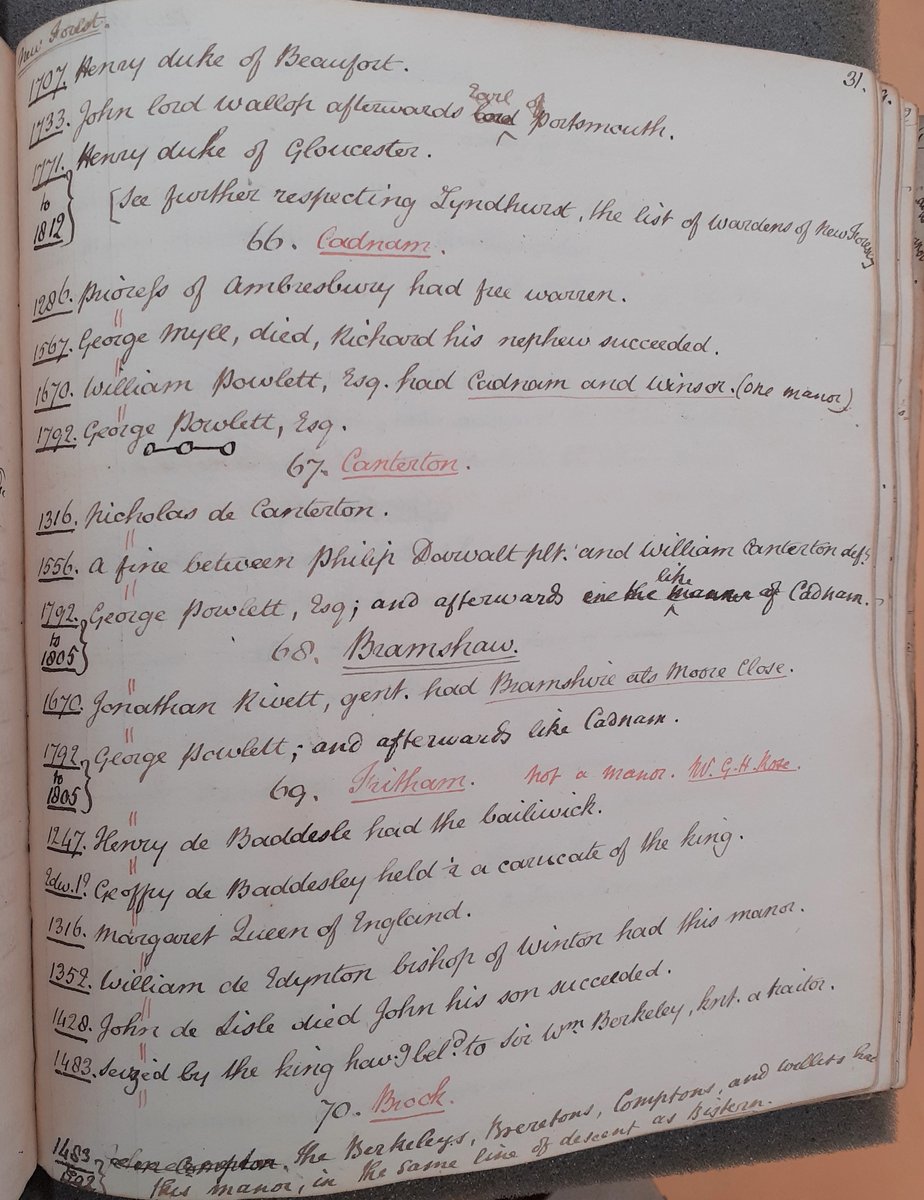 New Forest.
31.
1707. Henry duke of Beaufort.
1733. John lord Wallop afterwards lord Earl of Portsmouth.
1771. Henry duke of Gloucester.
to
1812
[See further respecting Lyndhurst, the list of wardens of New Forest]
66. Cadnam.
1286. Prioress of Ambresbury had free warren.
1567. George Myll, died, Richard his nephew succeeded.
1670. William Powlett, Esq. had Cadnam and Winsor. (one manor)
1792. George Powlett, Esq.
67. Canterton.
1316. Nicholas de Canterton.
1556. A fine between Philip Dorwalt plt. and William Canterton deft.
1792. George Powlett, Esq; and afterwards in the manner of like Cadnam.
to
1805
68. Bramshaw.
1670. Jonathan Rivett, gent. had Bramshire als Moore Close.
1792. George Powlett; and afterwards like Cadnam.
to
1805
69. Fritham. Not a manor. W. G. H. Rose.
1247. Henry de Baddesle had the bailiwick.
Edw. 1st Geoffry de Baddesley held ½ a carucate of the king.
1316. Margaret Queen of England.
1352. William de Edynton bishop of Winton had this manor.
1428. John de Lisle died John his son succeeded.
1483. Seized by the king havg beld to Sir Wm Berkeley, knt. a traitor.
70. Brook.
1483 Compton. The Berkeleys, Breretons, Comptons, and Willets had
1802 this manor, in the same line of descent as Bistern.